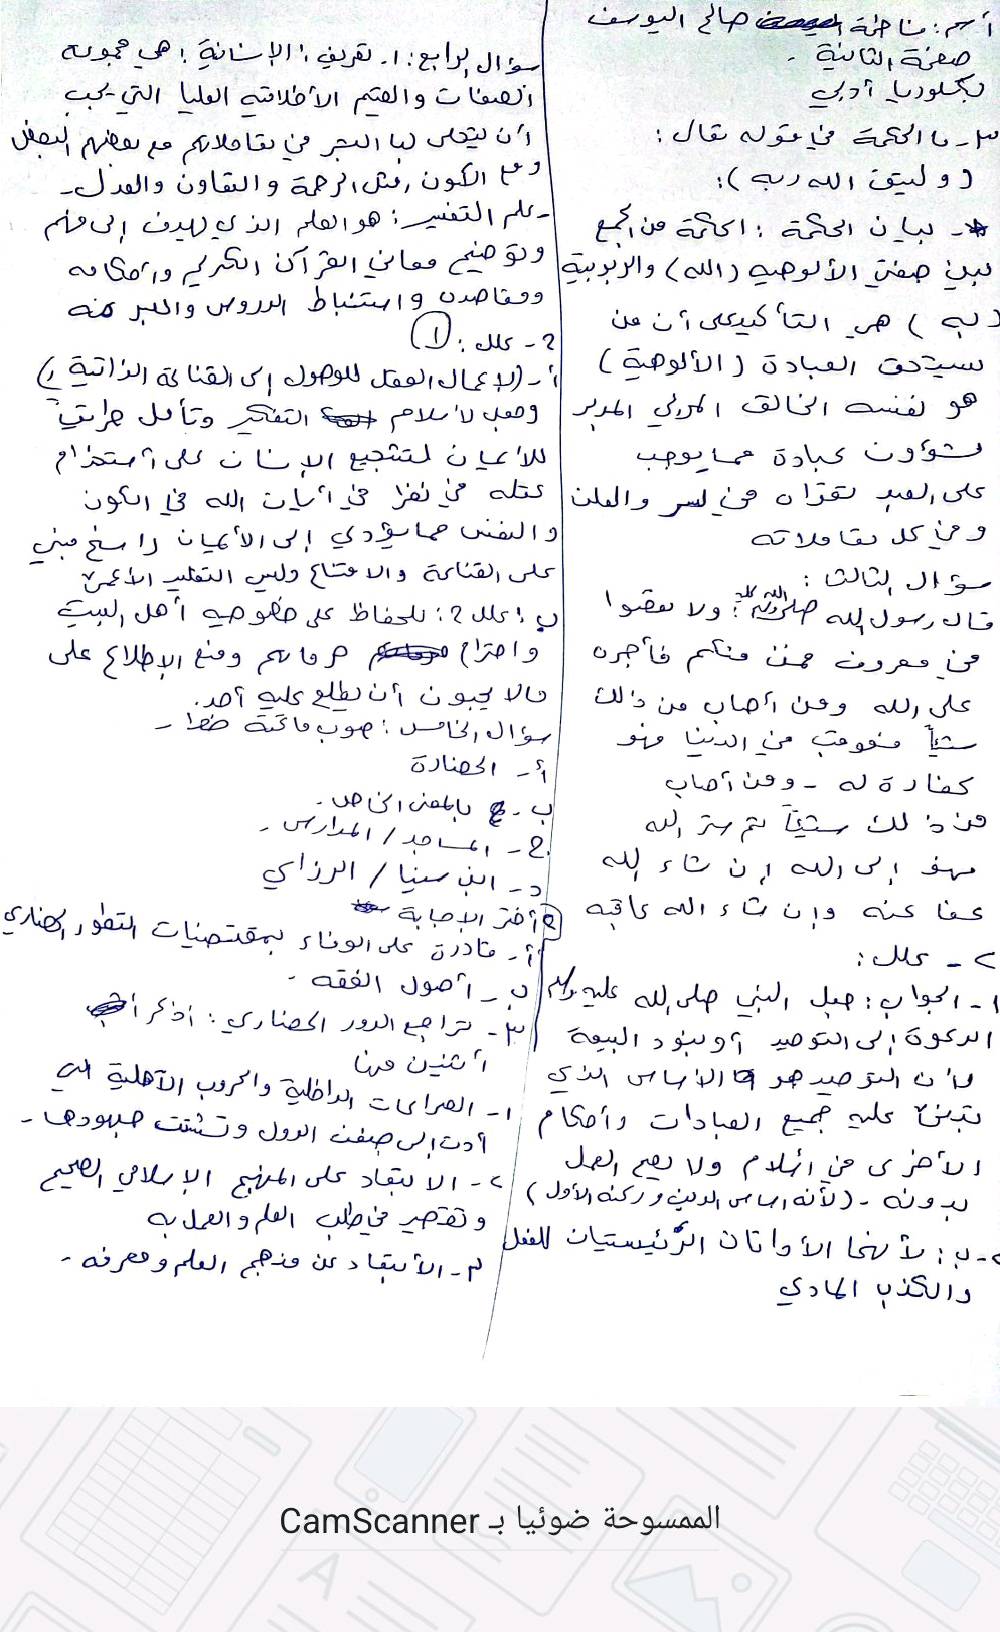 أسم: فاطمة صالح اليوسف
صفحة الثانية.
بكلوريا أدبي
٣- ما الحكمة في قوله تعالى:
(وليتق الله ربه):
- بيان الحكمة: الحكمة من الجمع
بين صفتي الألوهية (الله) والربوبية
(ربه) هي التأكيد على أن من
يستحق العبادة (الألوهية)
هو نفسه الخالق المربي المدبر
لشؤون عبادة مما يوجب
على العبد تقواه في السر والعلن
وفي كل معاملاته
سؤال الثالث:
قال رسول الله صلى الله عليه وسلم: ولا تعصوا
في معروف فمن منكم فأجره
على الله ومن أصاب من ذلك
شيئاً فعوقب في الدنيا فهو
كفارة له - ومن أصاب
من ذلك شيئاً ثم ستر الله
فهو إلى الله إن شاء الله
عفا عنه وإن شاء الله عاقبه
٢- علل:
١- الجواب: جعل النبي صلى الله عليه وسلم
الدعوة إلى التوحيد أول بنود البيعة
لأن التوحيد هو الأساس الذي
تبنى عليه جميع العبادات وأحكام
الأخرى في إسلام ولا يصح العمل
بدونه - (لأنه اساس الدين وركنه الأول)
٢- ب: لأنهما الأداتان الرئيستيان للفعل
والكذب المادي
سؤال الرابع: ١- تعريف: الإنسانية: هي مجموعة
الصفات والقيم الأخلاقية العليا التي يجب
أن يتحلى بها البشر في تعاملاتهم مع بعضهم البعض
ومع الكون، مثل الرحمة والتعاون والعدل-
- علم التفسير: هو العلم الذي يهدف إلى فهم
وتوضيح معاني القرآن الكريم وأحكامه
ومقاصده واستنباط الدروس والعبر منه
٢- علل: ١
أ- (لإعمال العقل للوصول إلى القناعة الذاتية)
وجعل لأسلام التفكير وتأمل طريق
للأيمان لتشجيع الإنسان على أستخدام
عقله في نظر في أيات الله في الكون
والنفس مما يؤدي إلى الأيمان راسخ مبني
على القناعة والاقتناع وليس التقليد الأعمى
ب: علل ٢: للحفاظ على خصوصيه أهل البيت
واحترام حرماتهم ومنع الإطلاع على
مالا يحبون أن يطلع عليه أحد.
سؤال الخامس: صوب ماتحته خط -
أ- الحضارة
ب- بالمعنى الخاص.
ج- المساجد / المدارس.
د- ابن سينا / الرزاي
٢ أختر الإجابة
أ- قادرة على الوفاء بمقتضيات التطور الحضاري
ب- أصول الفقه.
٣- تراجع الدور الحضاري: أذكر
أثنين منها
١- الصراعات الداخلية والحروب الأهلية التي
أدت إلى ضعف الدول وتشتت جهودها-
٢- الابتعاد على المنهج الإسلامي الصحيح
وتقصير في طلب العلم والعمل به
٣- الأبتعاد عن منهج العلم ومعرفه-
الممسوحة ضوئيا بـ CamScanner